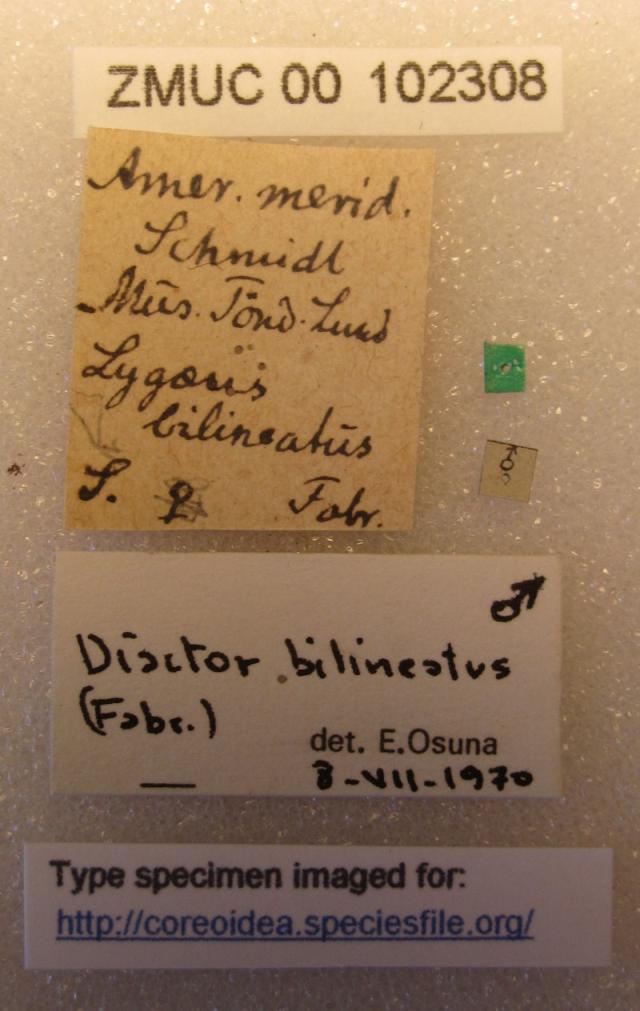 ZMUC 00 102308
Amer. merid.
Schmidt
Mus. Tönd. Lund
Lygæus
bilineatus
S. ♀ Fabr.
♂
♂
Diactor bilineatus
(Fabr.)
det. E.Osuna
8-VII-1970
Type specimen imaged for:
http://coreoidea.speciesfile.org/